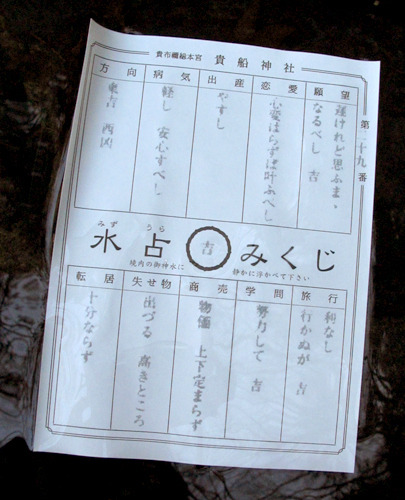 貴布禰総本宮 貴船神社
第二十九番
願望
遅けれど思ふまゝ
なるべし 吉
恋愛
心変はらずば叶ふべし
出産
やすし
病気
軽し 安心すべし
方向
東吉 西凶
水占みくじ
みず うら
吉
境内の御神水に
静かに浮かべて下さい
旅行
利なし
行かぬが 吉
学問
努力して 吉
商売
物価 上下定まらず
失せ物
出づる 高きところ
転居
十分ならず